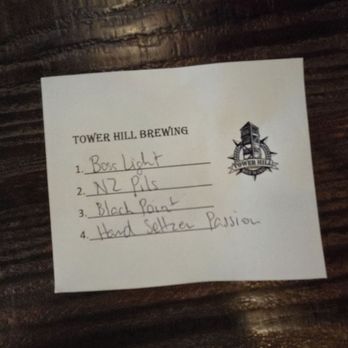 TOWER HILL BREWING
1. Boss Light
2. NZ Pils
3. Black Point
4. Hard Seltzer Passion
TOWER HILL